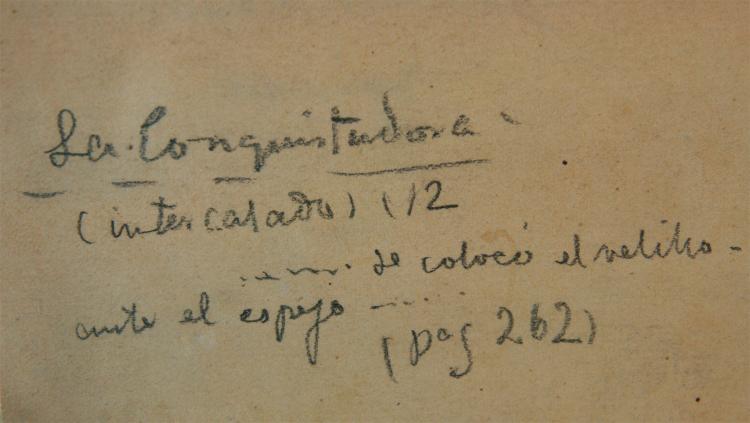 La Conquistadora.
(intercalado) (12
...... se colocó el velillo -
ante el espejo ......
(pag 262)